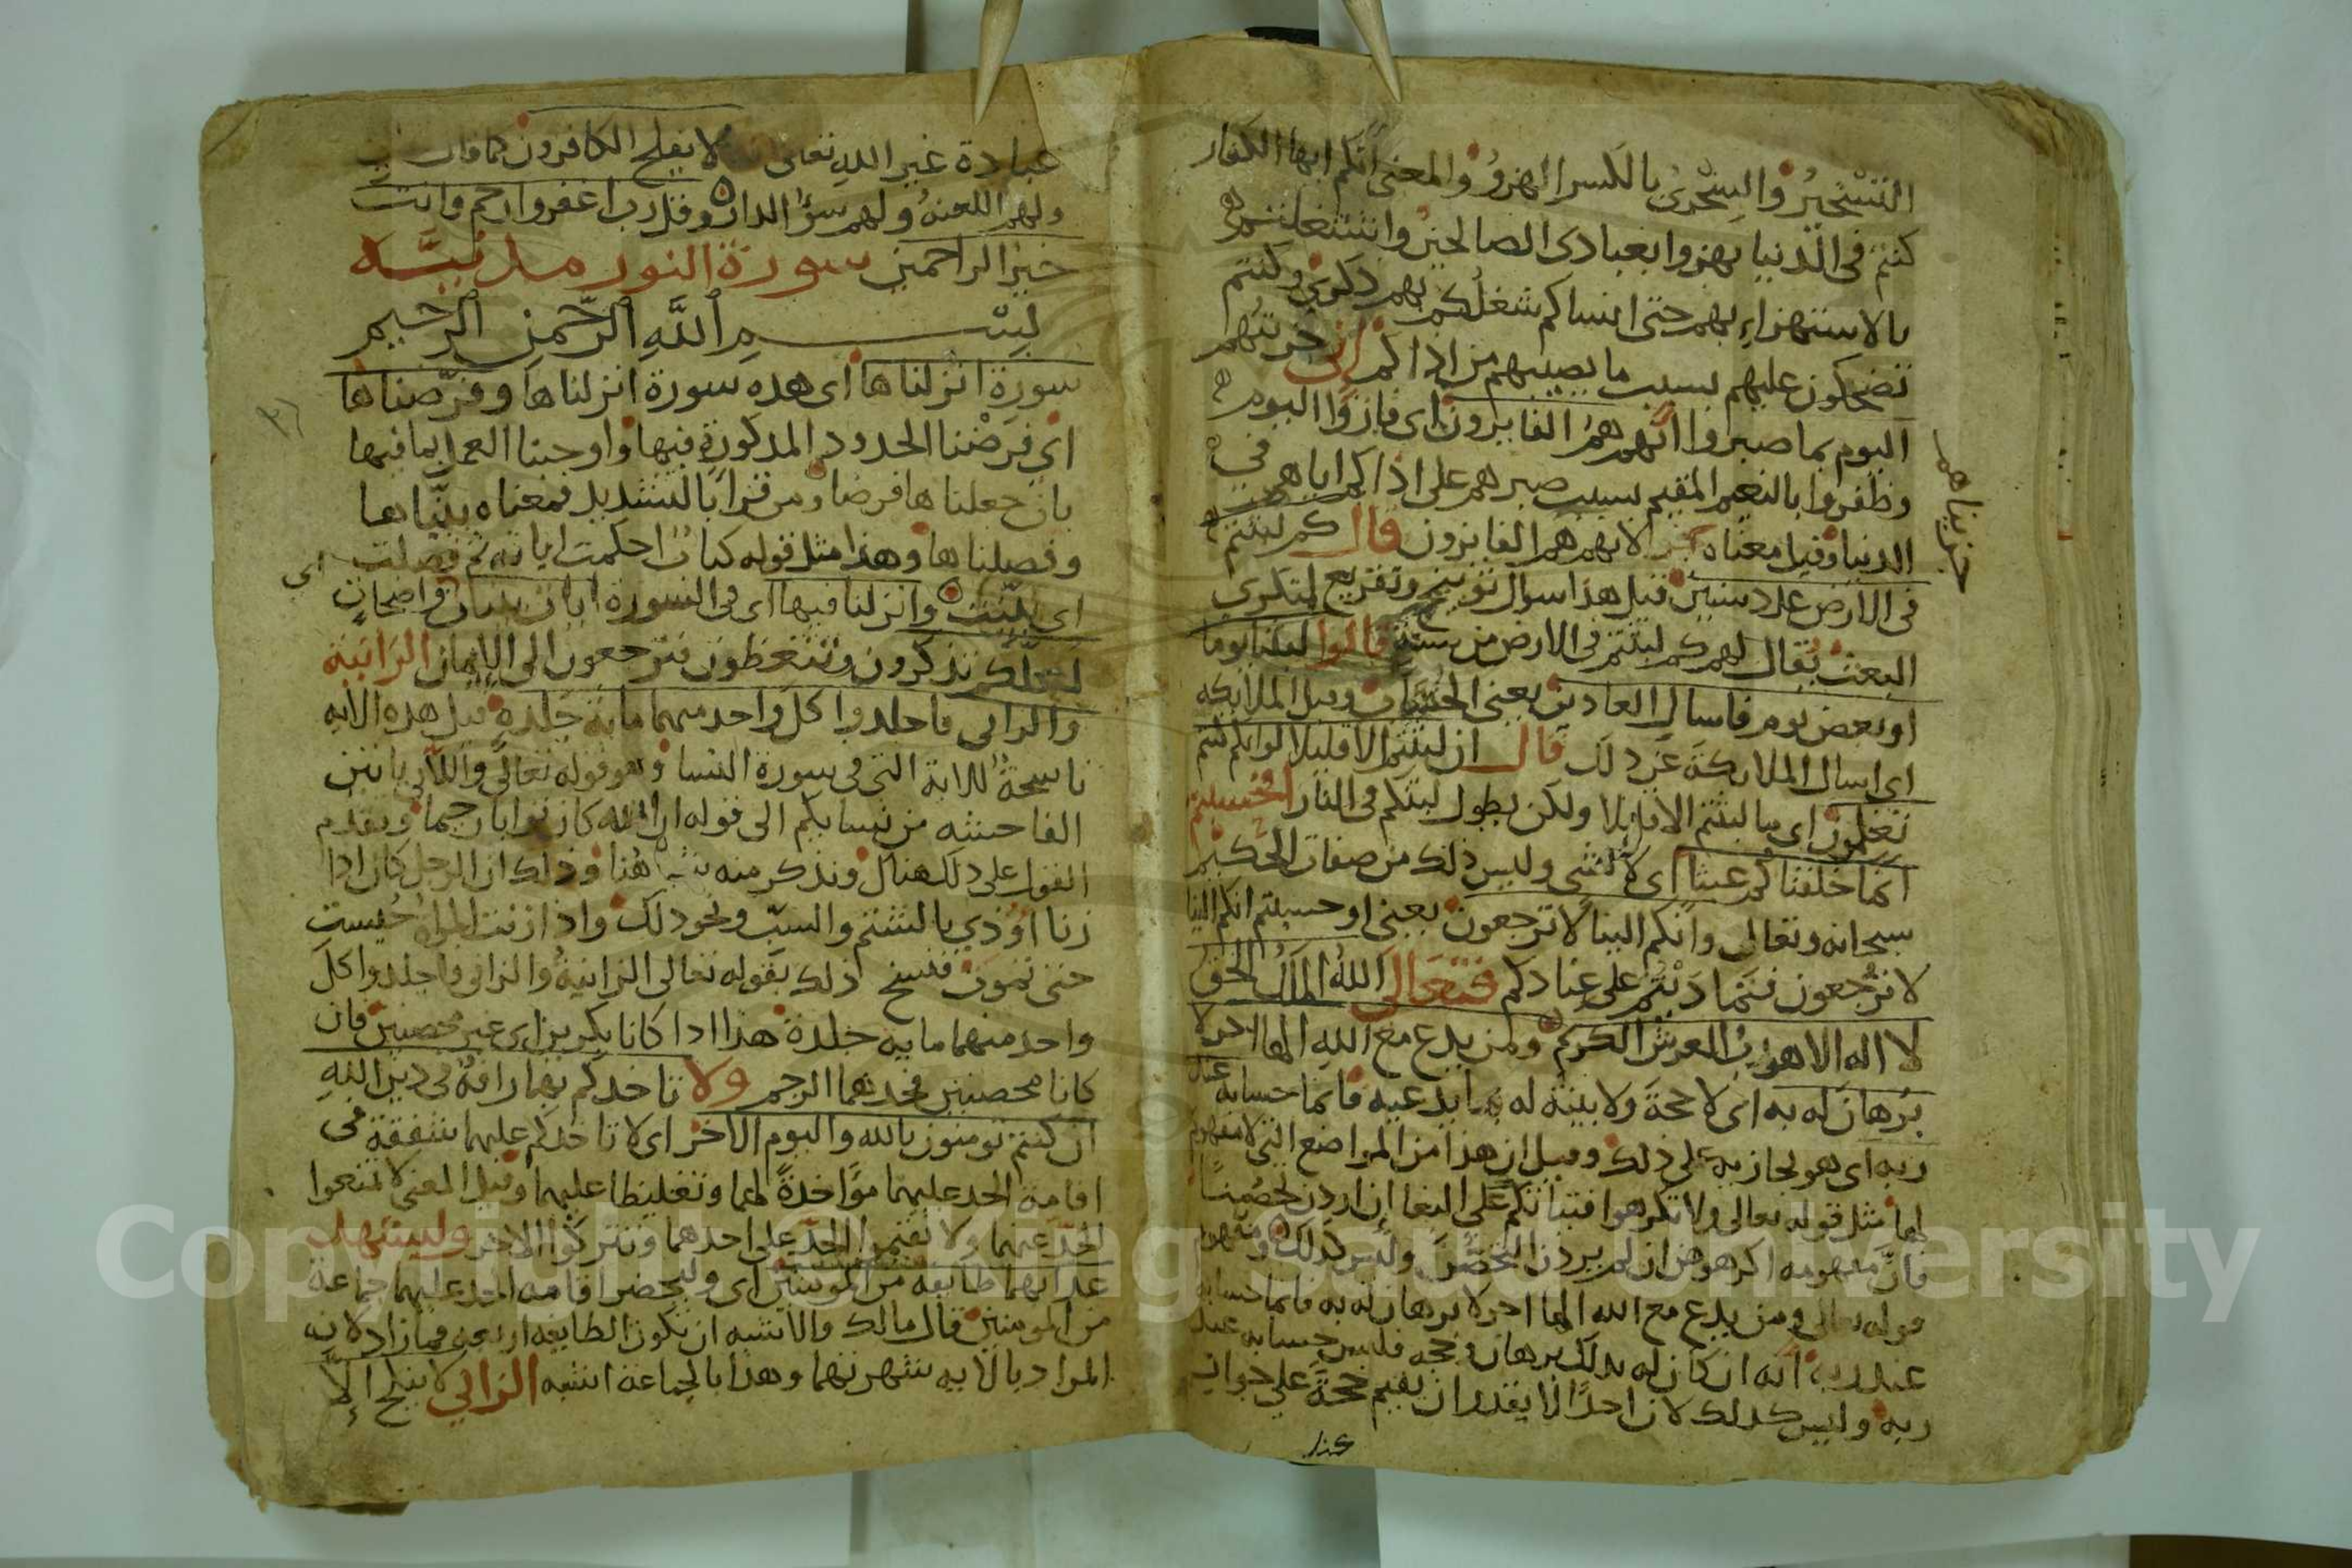 التسخير والسخري بالكسر الهزو والمعنى انكم ايها الكفار
كنتم في الدنيا تهزوا بعبادي الصالحين واشتغلتم
بالاستهزاء بهم حتى انساكم شغلكم بهم ذكري وكنتم
تضحكون عليهم بسبب ما يصيبهم من اذاكم اني جزيتهم
اليوم بما صبروا انهم هم الفايزون اى فازوا اليوم
وظفروا بالنعيم المقيم بسبب صبرهم على اذاكم اياهم في
جزيناهم
الدنيا وقيل معناه لانهم هم الفايزون قال كم لبثتم
في الارض عدد سنين قيل هذا سوال توبيخ وتقريع لمنكري
البعث يقال لهم كم لبثتم في الارض من سنة قالوا لبثنا يوما
او بعض يوم فاسال العادين يعنى الحساب وقيل الملايكه
اى اسال الملايكة عن ذلك قال ان لبثتم الا قليلا لو انكم كنتم
تعلمون اى ما لبثتم الا قليلا ولكن بطول لبثكم في النار افحسبتم
انما خلقناكم عبثا اى لا لشي وليس ذلك من صفات الحكيم
سبحانه وتعالى وانكم الينا لا ترجعون يعنى او حسبتم انكم الينا
لا ترجعون فتماديتم على عنادكم فتعالى الله الملك الحق
لا اله الا هو رب العرش الكريم ومن يدع مع الله الها اخر لا
برهان له به اى لا حجة ولا بينة له بما يدعيه فانما حسابه عند
ربه اى هو يجازيه على ذلك وقيل ان هذا من المواضع التي لا مفهوم
لها مثل قوله تعالى ولا تكرهوا فتياتكم على البغا ان اردن تحصنا
فان مفهومه اكرهوهن ان لم يردن التحصن وليس كذلك ومفهوم
قوله تعالى ومن يدع مع الله الها اخر لا برهان له به فانما حسابه
عند ربه انه ان كان له بذلك برهان وحجه فليس حسابه عند
ربه وليس كذلك لان احدا لا يقدر ان يقيم حجة على جواز
عبادة غير الله تعالى لا يفلح الكافرون كما قال
ولهم اللعنة ولهم سوء الدار وقل رب اغفر وارحم وانت
خير الراحمين سورة النور مدنيه
بسم الله الرحمن الرحيم
سورة انزلناها اى هذه سورة انزلناها وفرضناها
اى فرضنا الحدود المذكورة فيها واوجبنا العمل بما فيها
بان جعلناها فرضا ومن قرا بالتشديد فمعناه بيناها
وفصلناها وهذا مثل قوله كتاب احكمت اياته ثم فصلت اى
اى بينت وانزلنا فيها اى في السورة ايات بينات واضحات
لعلكم تذكرون وتتعظون فترجعون الى الايمان الزانية
والزاني فاجلدوا كل واحد منهما ماية جلدة قيل هذه الايه
ناسخة للاية التي في سورة النسا وهو قوله تعالى واللاتي ياتين
الفاحشه من نسايكم الى قوله ان الله كان توابا رحيما وتقدم
القول على ذلك هناك ونذكر منه هنا وذلك ان الرجل كان اذا
زنا اوذي بالشتم والسب ونحو ذلك واذا زنت المراة حبست
حتى تموت فنسخ ذلك بقوله تعالى الزانية والزاني فاجلدوا كل
واحد منهما مايه جلدة هذا اذا كانا بكرين اى غير محصنين فان
كانا محصنين فحدهما الرجم ولا تاخذكم بهما رافة في دين الله
ان كنتم تومنون بالله واليوم الاخر اى لا تاخذكم عليهما شفقة في
اقامة الحد عليهما مؤاخذة لهما وتغليظا عليهما وقيل المعنى لا تمنعوا
الحد عنهما ولا تقيموا الحد على احدهما وتتركوا الاخر وليشهد
عذابهما طايفة من المومنين اى وليحضر اقامة الحد عليهما جماعة
من المومنين قال مالك والاشبه ان تكون الطايفه اربعه فما زاد لان
المراد بالايه شهرتهما وهذا بالجماعة اشبه الزاني لا ينكح الا